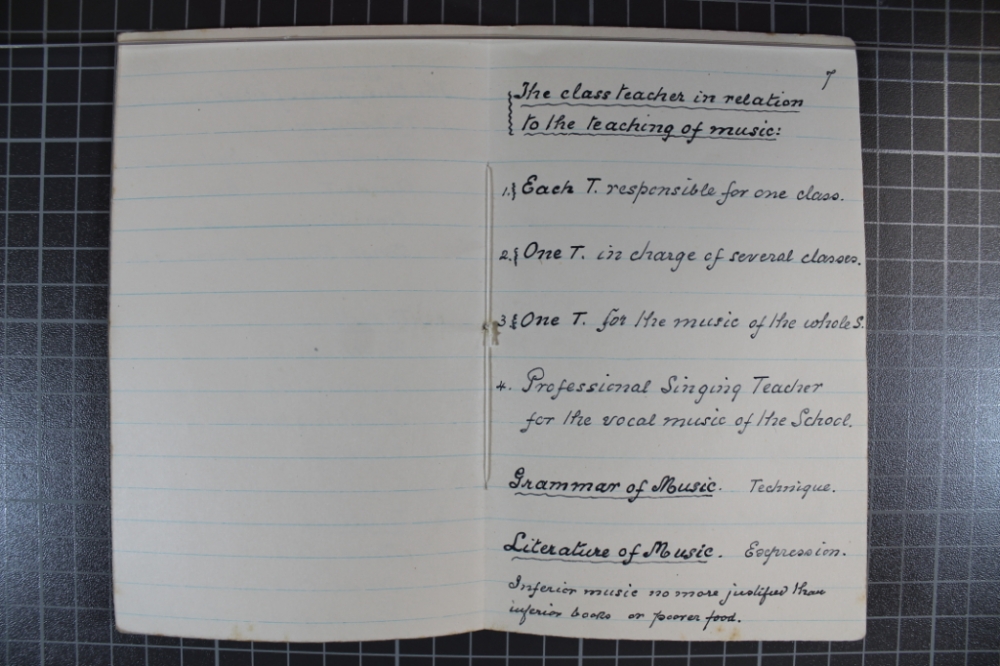 7
The class teacher in relation
to the teaching of music:
1.} Each T. responsible for one class.
2.{ One T. in charge of several classes.
3.{ One T. for the music of the whole S.
4. Professional Singing Teacher
for the vocal music of the School.
Grammar of Music. Technique.
Literature of Music. Expression.
Inferior music no more justified than
inferior books or poorer food.